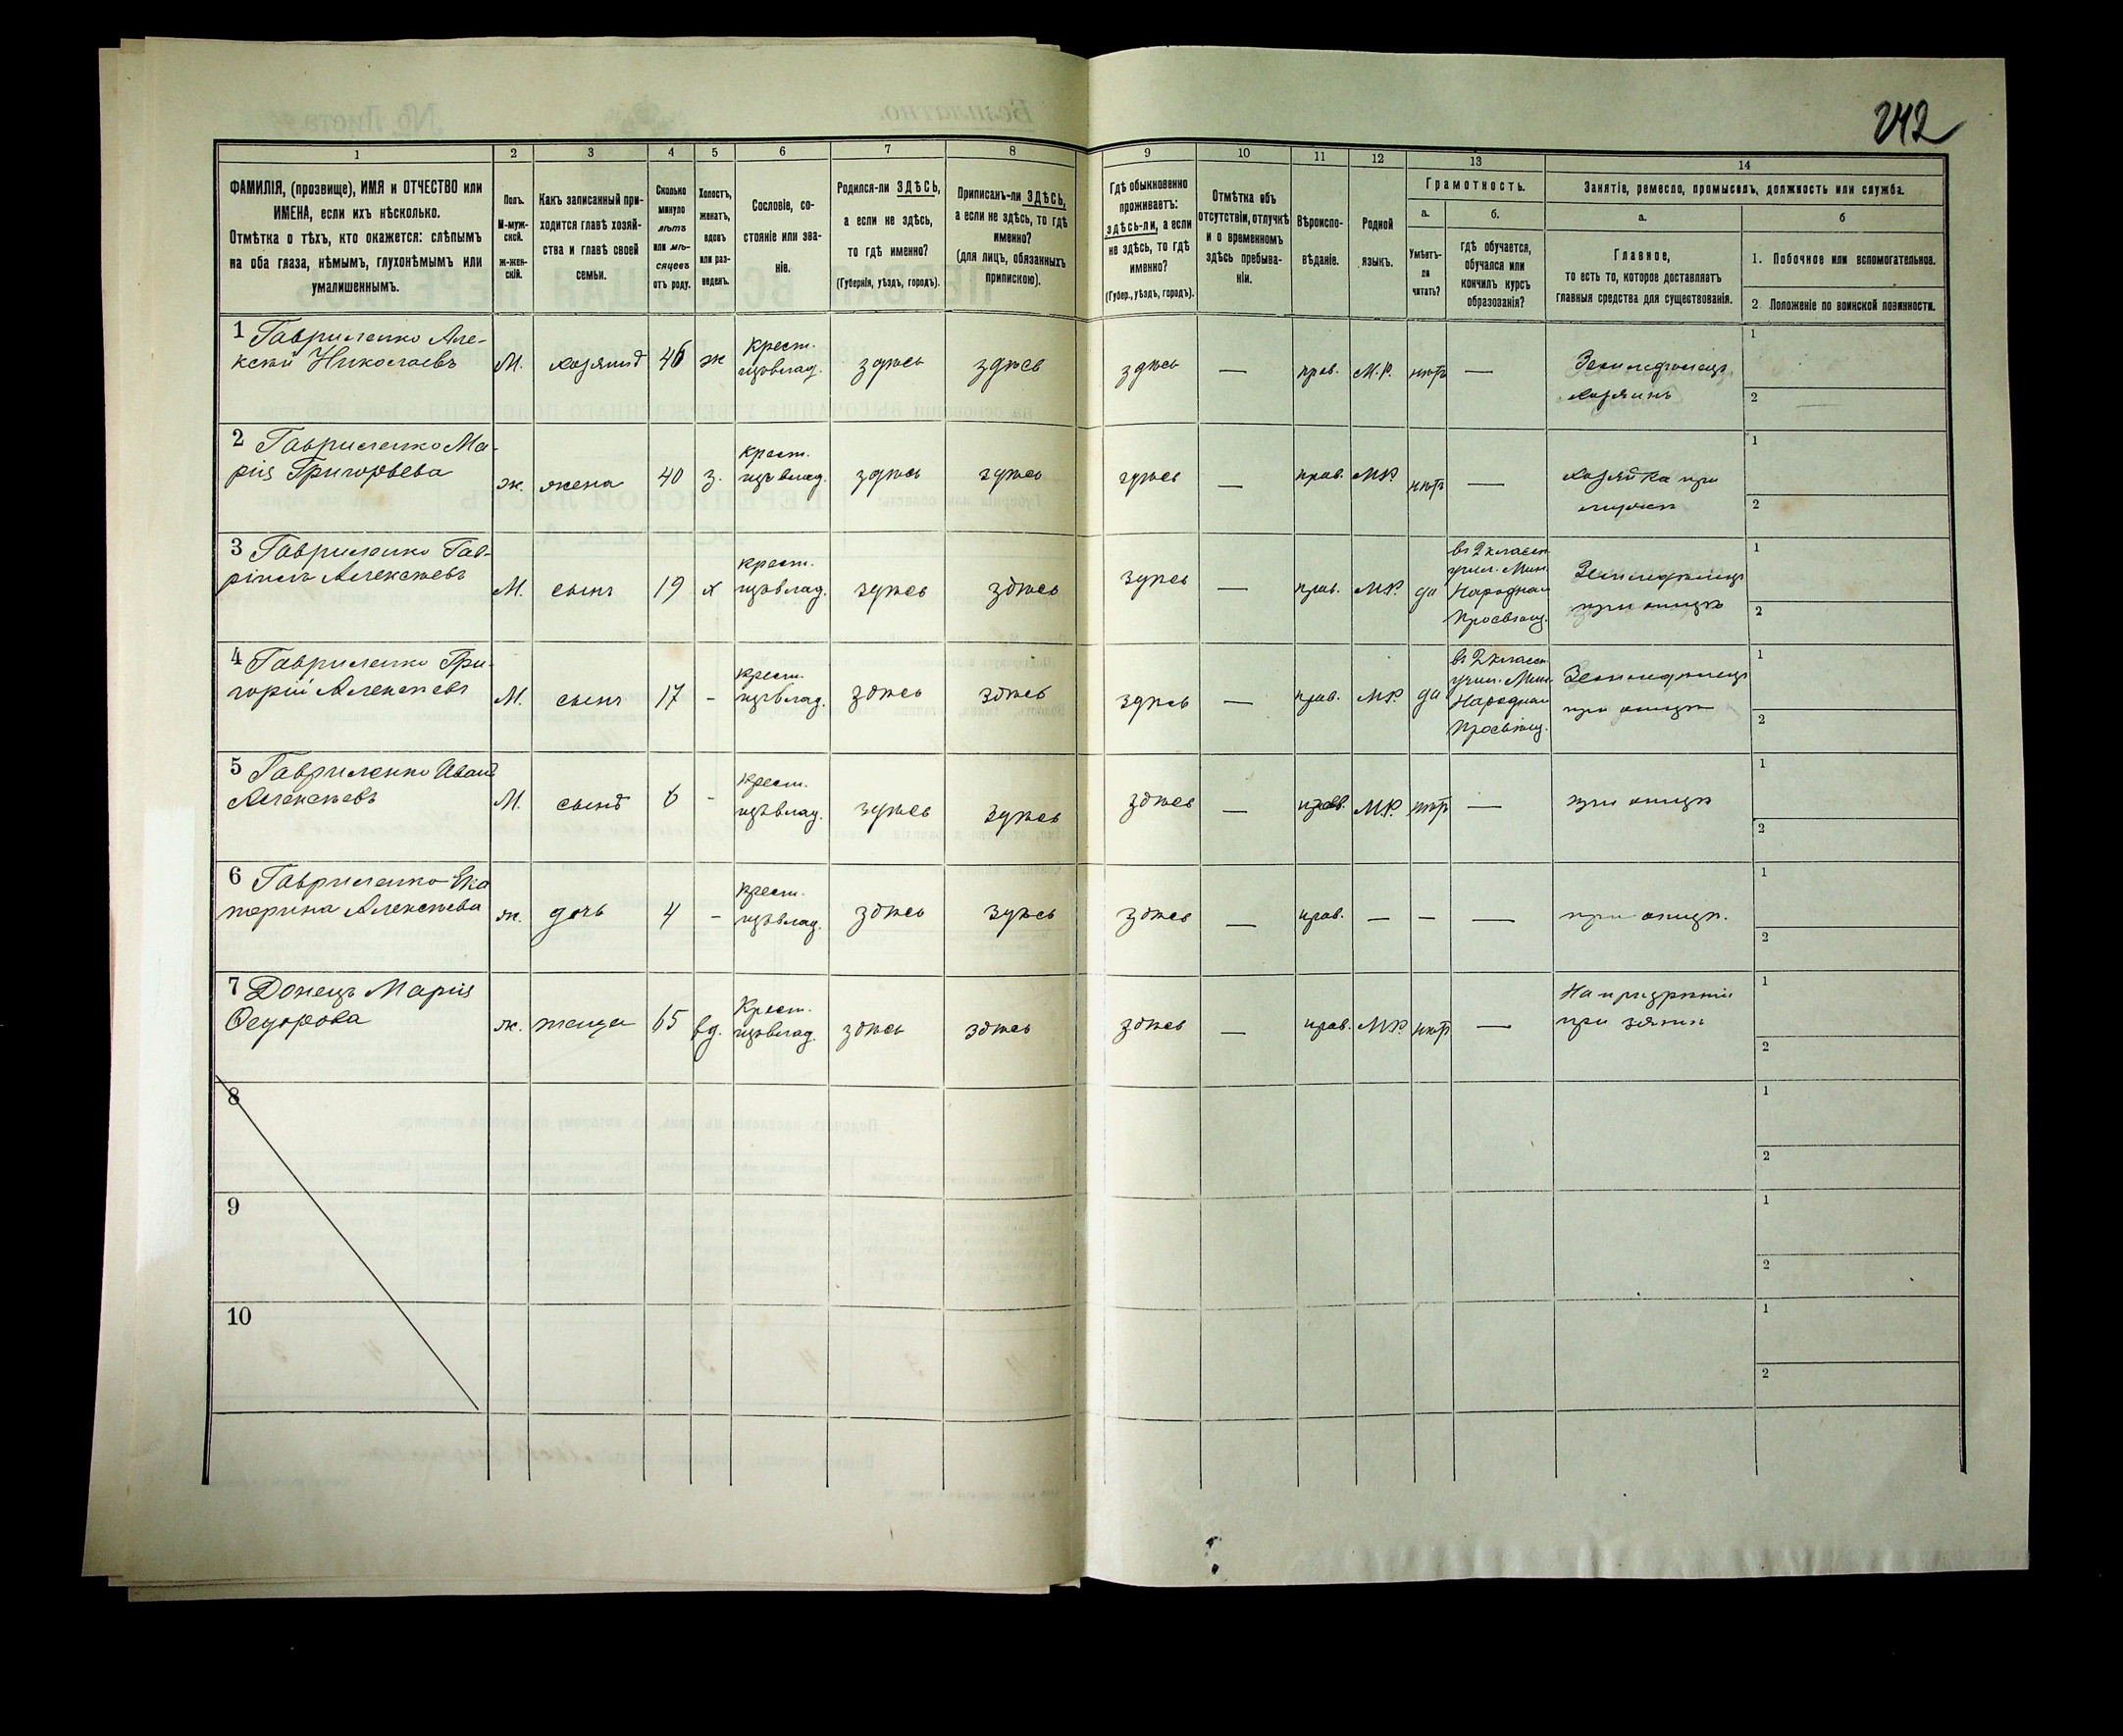 242
1
2
3
4
5
6
7
8
9
10
11
12
13
14
ФАМИЛІЯ, (прозвище), ИМЯ и ОТЧЕСТВО или
ИМЕНА, если ихъ нѣсколько.
Отмѣтка о тѣхъ, кто окажется: слѣпымъ
на оба глаза, нѣмымъ, глухонѣмымъ или
умалишеннымъ.
Полъ.
М-муж-
ской.
ж-жен-
скій.
Какъ записанный при-
ходится главѣ хозяй-
ства и главѣ своей
семьи.
Сколько
минуло
лѣтъ
или мѣ-
сяцевъ
отъ роду.
Холостъ,
женатъ,
вдовъ
или раз-
веденъ.
Сословіе, со-
стояніе или зва-
ніе.
Родился-ли ЗДѢСЬ,
а если не здѣсь,
то гдѣ именно?
(Губернія, уѣздъ, городъ).
Приписанъ-ли ЗДѢСЬ,
а если не здѣсь, то гдѣ
именно?
(для лицъ, обязанныхъ
припискою).
Гдѣ обыкновенно
проживаетъ:
здѣсь-ли, а если
не здѣсь, то гдѣ
именно?
(Губер., уѣздъ, городъ).
Отмѣтка объ
отсутствіи, отлучкѣ
и о временномъ
здѣсь пребыва-
ніи.
Вѣроиспо-
вѣданіе.
Родной
языкъ.
Грамотность.
а.
Умѣетъ-
ли
читать?
б.
гдѣ обучается,
обучался или
кончилъ курсъ
образованія?
Занятіе, ремесло, промыселъ, должность или служба.
а.
Главное,
то есть то, которое доставляетъ
главныя средства для существованія.
б
1. Побочное или вспомогательное.
2. Положеніе по воинской повинности.
1 Гавриленко Але-
ксѣй Николаевъ
М. хозяинъ 46 ж
Крест.
изъ влад.
здѣсь здѣсь здѣсь — прав. М.Р. нѣтъ —
Земледѣлецъ
хозяинъ
1
2
2 Гавриленко Ма-
рія Григорьева
ж. жена 40 з.
крест.
изъ влад.
здѣсь здѣсь здѣсь — прав. МР. нѣтъ —
хозяйка при
мужѣ
1
2
3 Гавриленко Гав-
ріилъ Алексѣевъ
М. сынъ 19 х
крест.
изъ влад.
здѣсь здѣсь здѣсь — прав. МР. да
въ 2 класен.
учил. Мин.
Народнаго
Просвѣщ.
Земледѣлецъ
при отцѣ
1
2
4 Гавриленко Гри-
горій Алексѣевъ
М. сынъ 17 -
крест.
изъ влад.
здѣсь здѣсь здѣсь — прав. МР. да
въ 2 класен.
учил. Мин.
Народнаго
Просвѣщ.
Земледѣлецъ
при отцѣ
1
2
5 Гавриленко Иванъ
Алексѣевъ
М. сынъ 6 -
Крест.
изъ влад.
здѣсь здѣсь здѣсь — прав. М.Р. нѣтъ —
при отцѣ
1
2
6 Гавриленко Ека
терина Алексѣева
ж. дочь 4 -
крест.
изъ влад.
здѣсь здѣсь здѣсь — прав. — — —
при отцѣ.
1
2
7 Донецъ Марія
Ѳедорова
ж. теща 65 вд.
Крест.
изъ влад.
здѣсь здѣсь здѣсь — прав. МР. нѣтъ —
На призрѣніи
при зятѣ
1
2
8
1
2
9
1
2
10
1
2